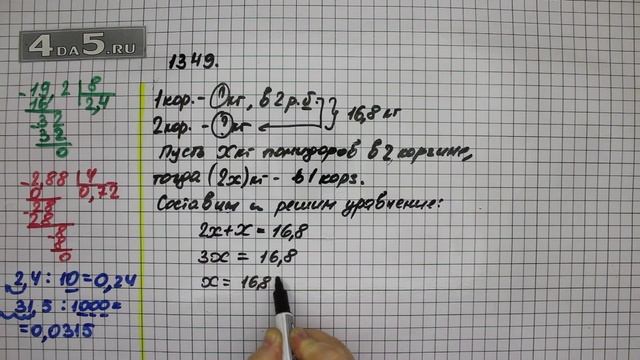 4DA5.RU
1349.
1кор. - ? кг, в 2 р. б
2кор. - ? кг
16,8 кг
Пусть x кг помидоров в 2 корзине,
тогда (2x) кг - в 1 корз.
Составим и решим уравнение:
2x+x = 16,8
3x = 16,8
x = 16,8
19,2 8
16 2,4
32
32
0
2,88 4
0 0,72
28
28
8
8
0
2,4 : 10 = 0,24
31,5 : 1000 =
= 0,0315